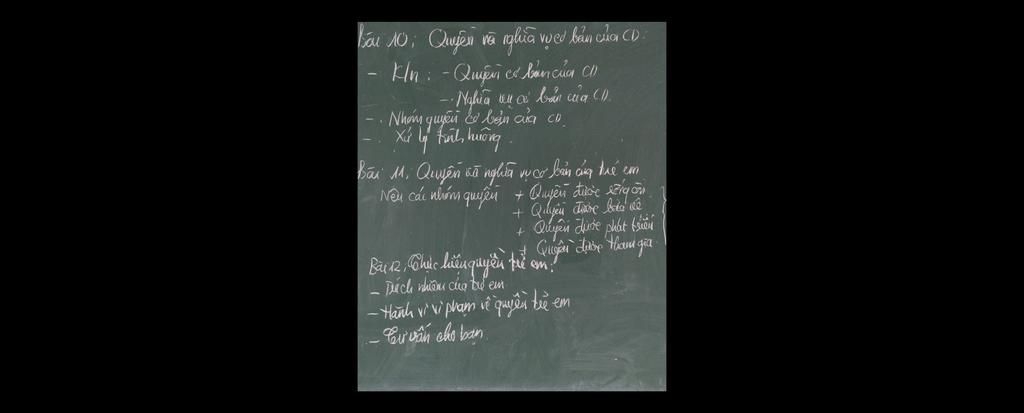 Bài 10: Quyền và nghĩa vụ cơ bản của CD.
- K/n : - Quyền cơ bản của CD
- Nghĩa vụ cơ bản của CD.
- Nhóm quyền cơ bản của CD
- Xử lý tình huống.
Bài 11, Quyền và nghĩa vụ cơ bản của trẻ em
Nêu các nhóm quyền + Quyền được sống còn
+ Quyền được bảo vệ
+ Quyền được phát triển
+ Quyền được tham gia
Bài 12, Thực hiện quyền trẻ em.
- Trách nhiệm của trẻ em
- Hành vi vi phạm về quyền trẻ em
- Tư vấn cho bạn.